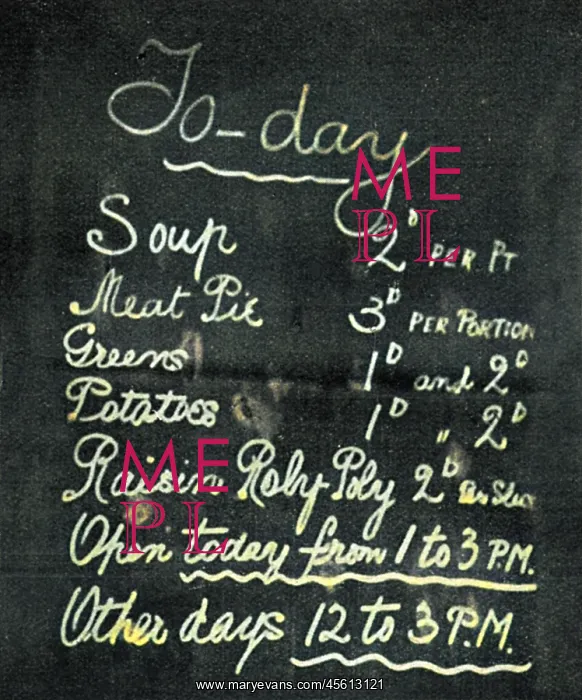 To-day
Soup 2D PER PT
Meat Pie 3D PER PORTION
Greens 1D and 2D
Potatoes 1D " 2D
Raisin Roly-Poly 2D
Open today from 1 to 3 P.M.
Other days 12 to 3 P.M.
ME
PL
ME
PL
www.maryevans.com/45613121